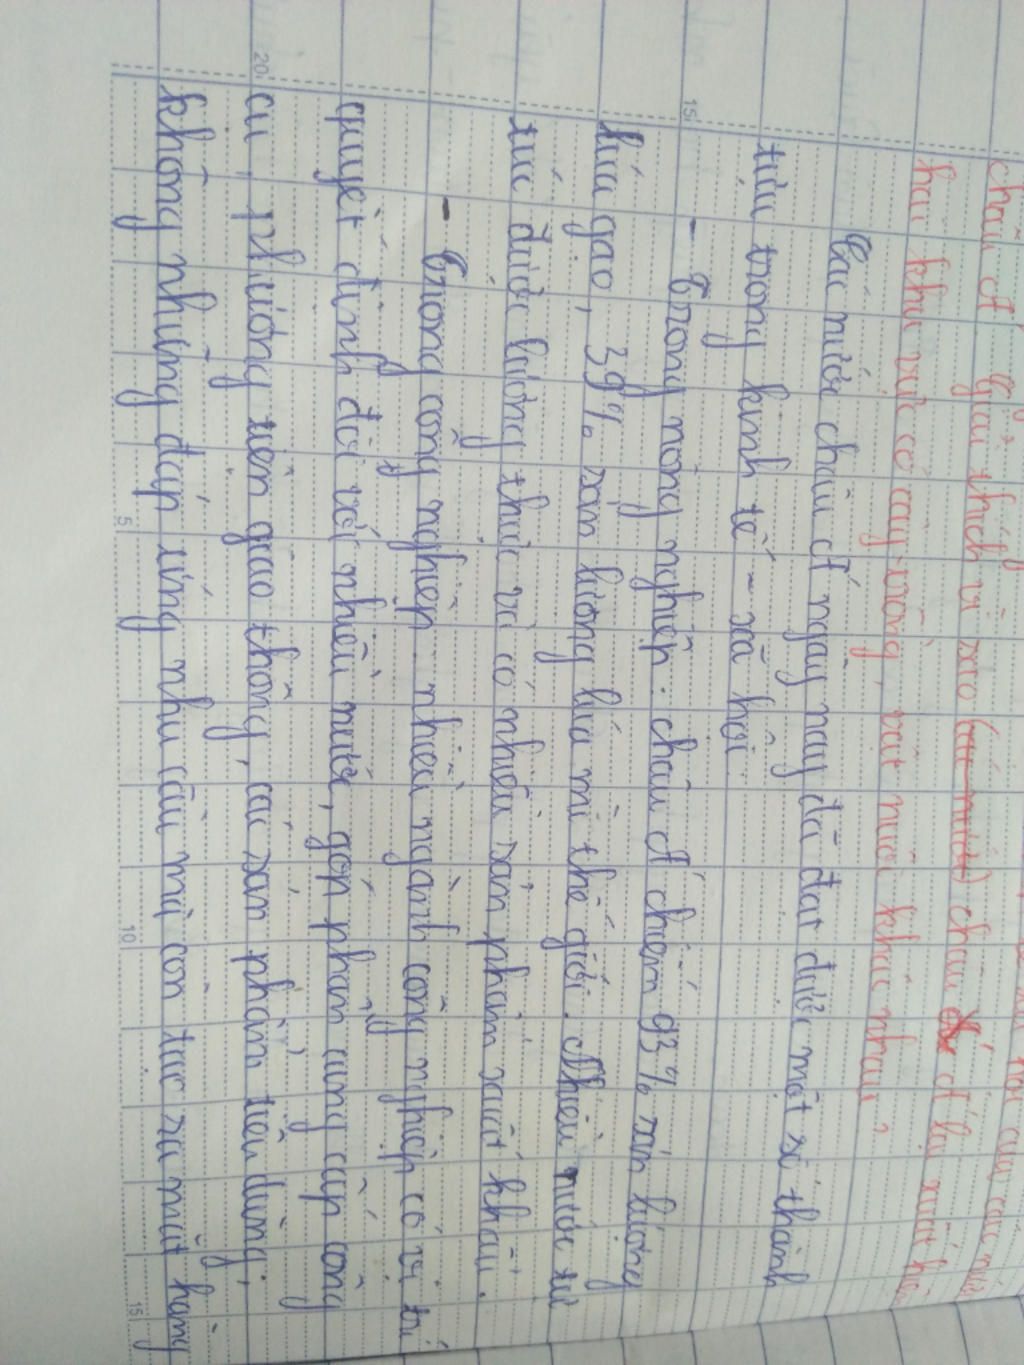 của các nước
châu Á. Giải thích vì sao (các nước) châu Á lại xuất hiện
hai khu vực có cây trồng, vật nuôi khác nhau?
Các nước châu Á ngày nay đã đạt được một số thành
tựu trong kinh tế - xã hội.
- Trong nông nghiệp: châu Á chiếm 93% sản lượng
lúa gạo, 39% sản lượng lúa mì thế giới. Nhiều nước tự
túc được lương thực và có nhiều sản phẩm xuất khẩu.
- Trong công nghiệp: nhiều ngành công nghiệp có vị trí
quyết định đối với nhiều nước, góp phần cung cấp công
cụ, phương tiện giao thông, các sản phẩm tiêu dùng;
không những đáp ứng nhu cầu mà còn tạc ra mặt hàng
20
15
5
10
15